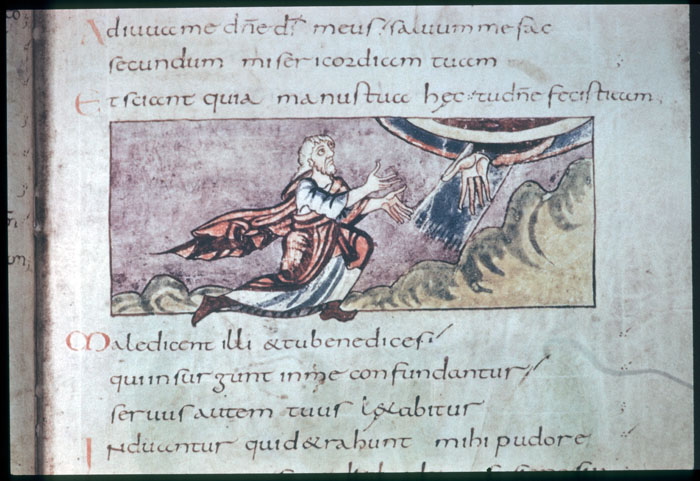 Adiuua me dn̄e ds̄ meus; saluum me fac
secundum misericordiam tuam
Et sciant quia manus tua hęc · tu dn̄e fecisti eam;
Maledicent illi & tu benedices;
qui insurgunt in me confundantur;
seruus autem tuus l&abitur
Induantur qui d&rahunt mihi pudore